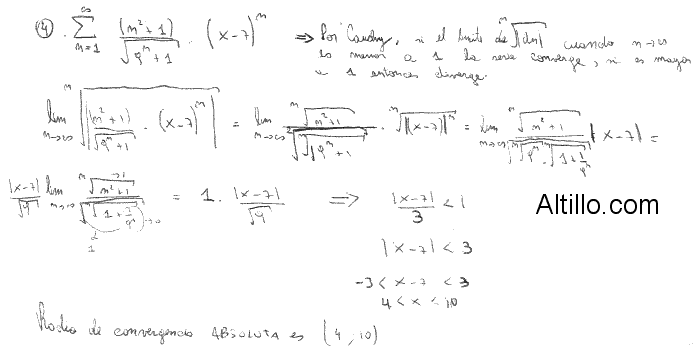 4. \sum_{n=1}^{\infty} \frac{(n^2+1)}{\sqrt{9^n+1}} \cdot (x-7)^n ⇒ Por Cauchy, si el límite de \sqrt[n]{|an|} cuando n→∞
es menor a 1 la serie converge, si es mayor
a 1 entonces diverge.
\lim_{n→∞} \sqrt[n]{\left|\frac{(n^2+1)}{\sqrt{9^n+1}} \cdot (x-7)^n\right|} = \lim_{n→∞} \frac{\sqrt[n]{n^2+1}}{\sqrt[n]{\sqrt{9^n+1}}} \cdot \sqrt[n]{|(x-7)|^n} = \lim_{n→∞} \frac{\sqrt[n]{n^2+1}}{\sqrt[n]{\sqrt{9^n}} \cdot \sqrt[n]{\sqrt{1+\frac{1}{9^n}}}} |x-7| =
\frac{|x-7|}{\sqrt{9}} \lim_{n→∞} \frac{\sqrt[n]{n^2+1} →1}{\sqrt[n]{\sqrt{1+\frac{1}{9^n}}} →0} = 1 \cdot \frac{|x-7|}{\sqrt{9}} ⇒ \frac{|x-7|}{3} < 1
1
Altillo.com
|x-7| < 3
-3 < x-7 < 3
4 < x < 10
Radio de convergencia ABSOLUTA es (4, 10)